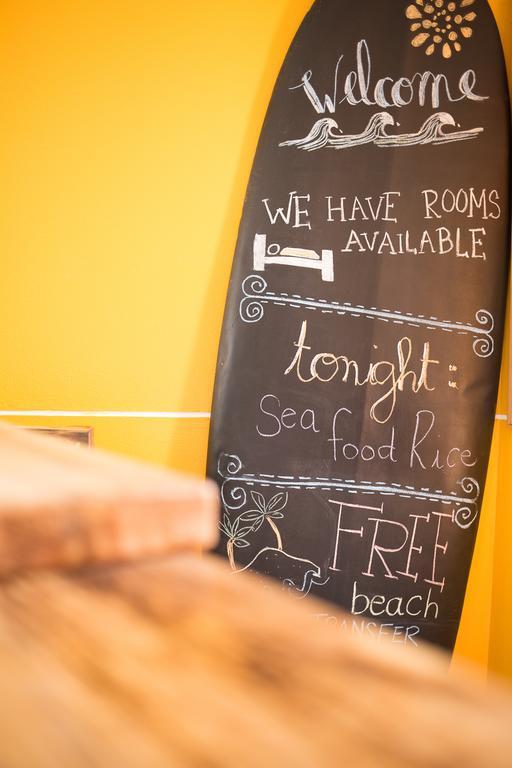 Welcome
WE HAVE ROOMS
AVAILABLE
tonight:
Sea food Rice
FREE
beach
TRANSFER